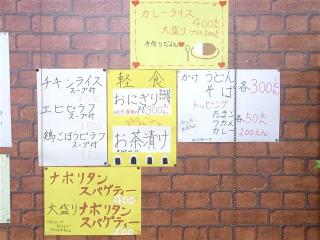 カレーライス
400円
大盛り プラス200円
手作りだよん
チキンライス
スープ付
エビピラフ
スープ付
鶏ごぼうピラフ
スープ付
軽食
おにぎり
300円
お茶漬け
かけ うどん
そば
各300えん
トッピング
たまご
ワカメ
カレー
各50え
100えん
ナポリタン
スパゲティー
400
大盛り ナポリタン
スパゲティー
600